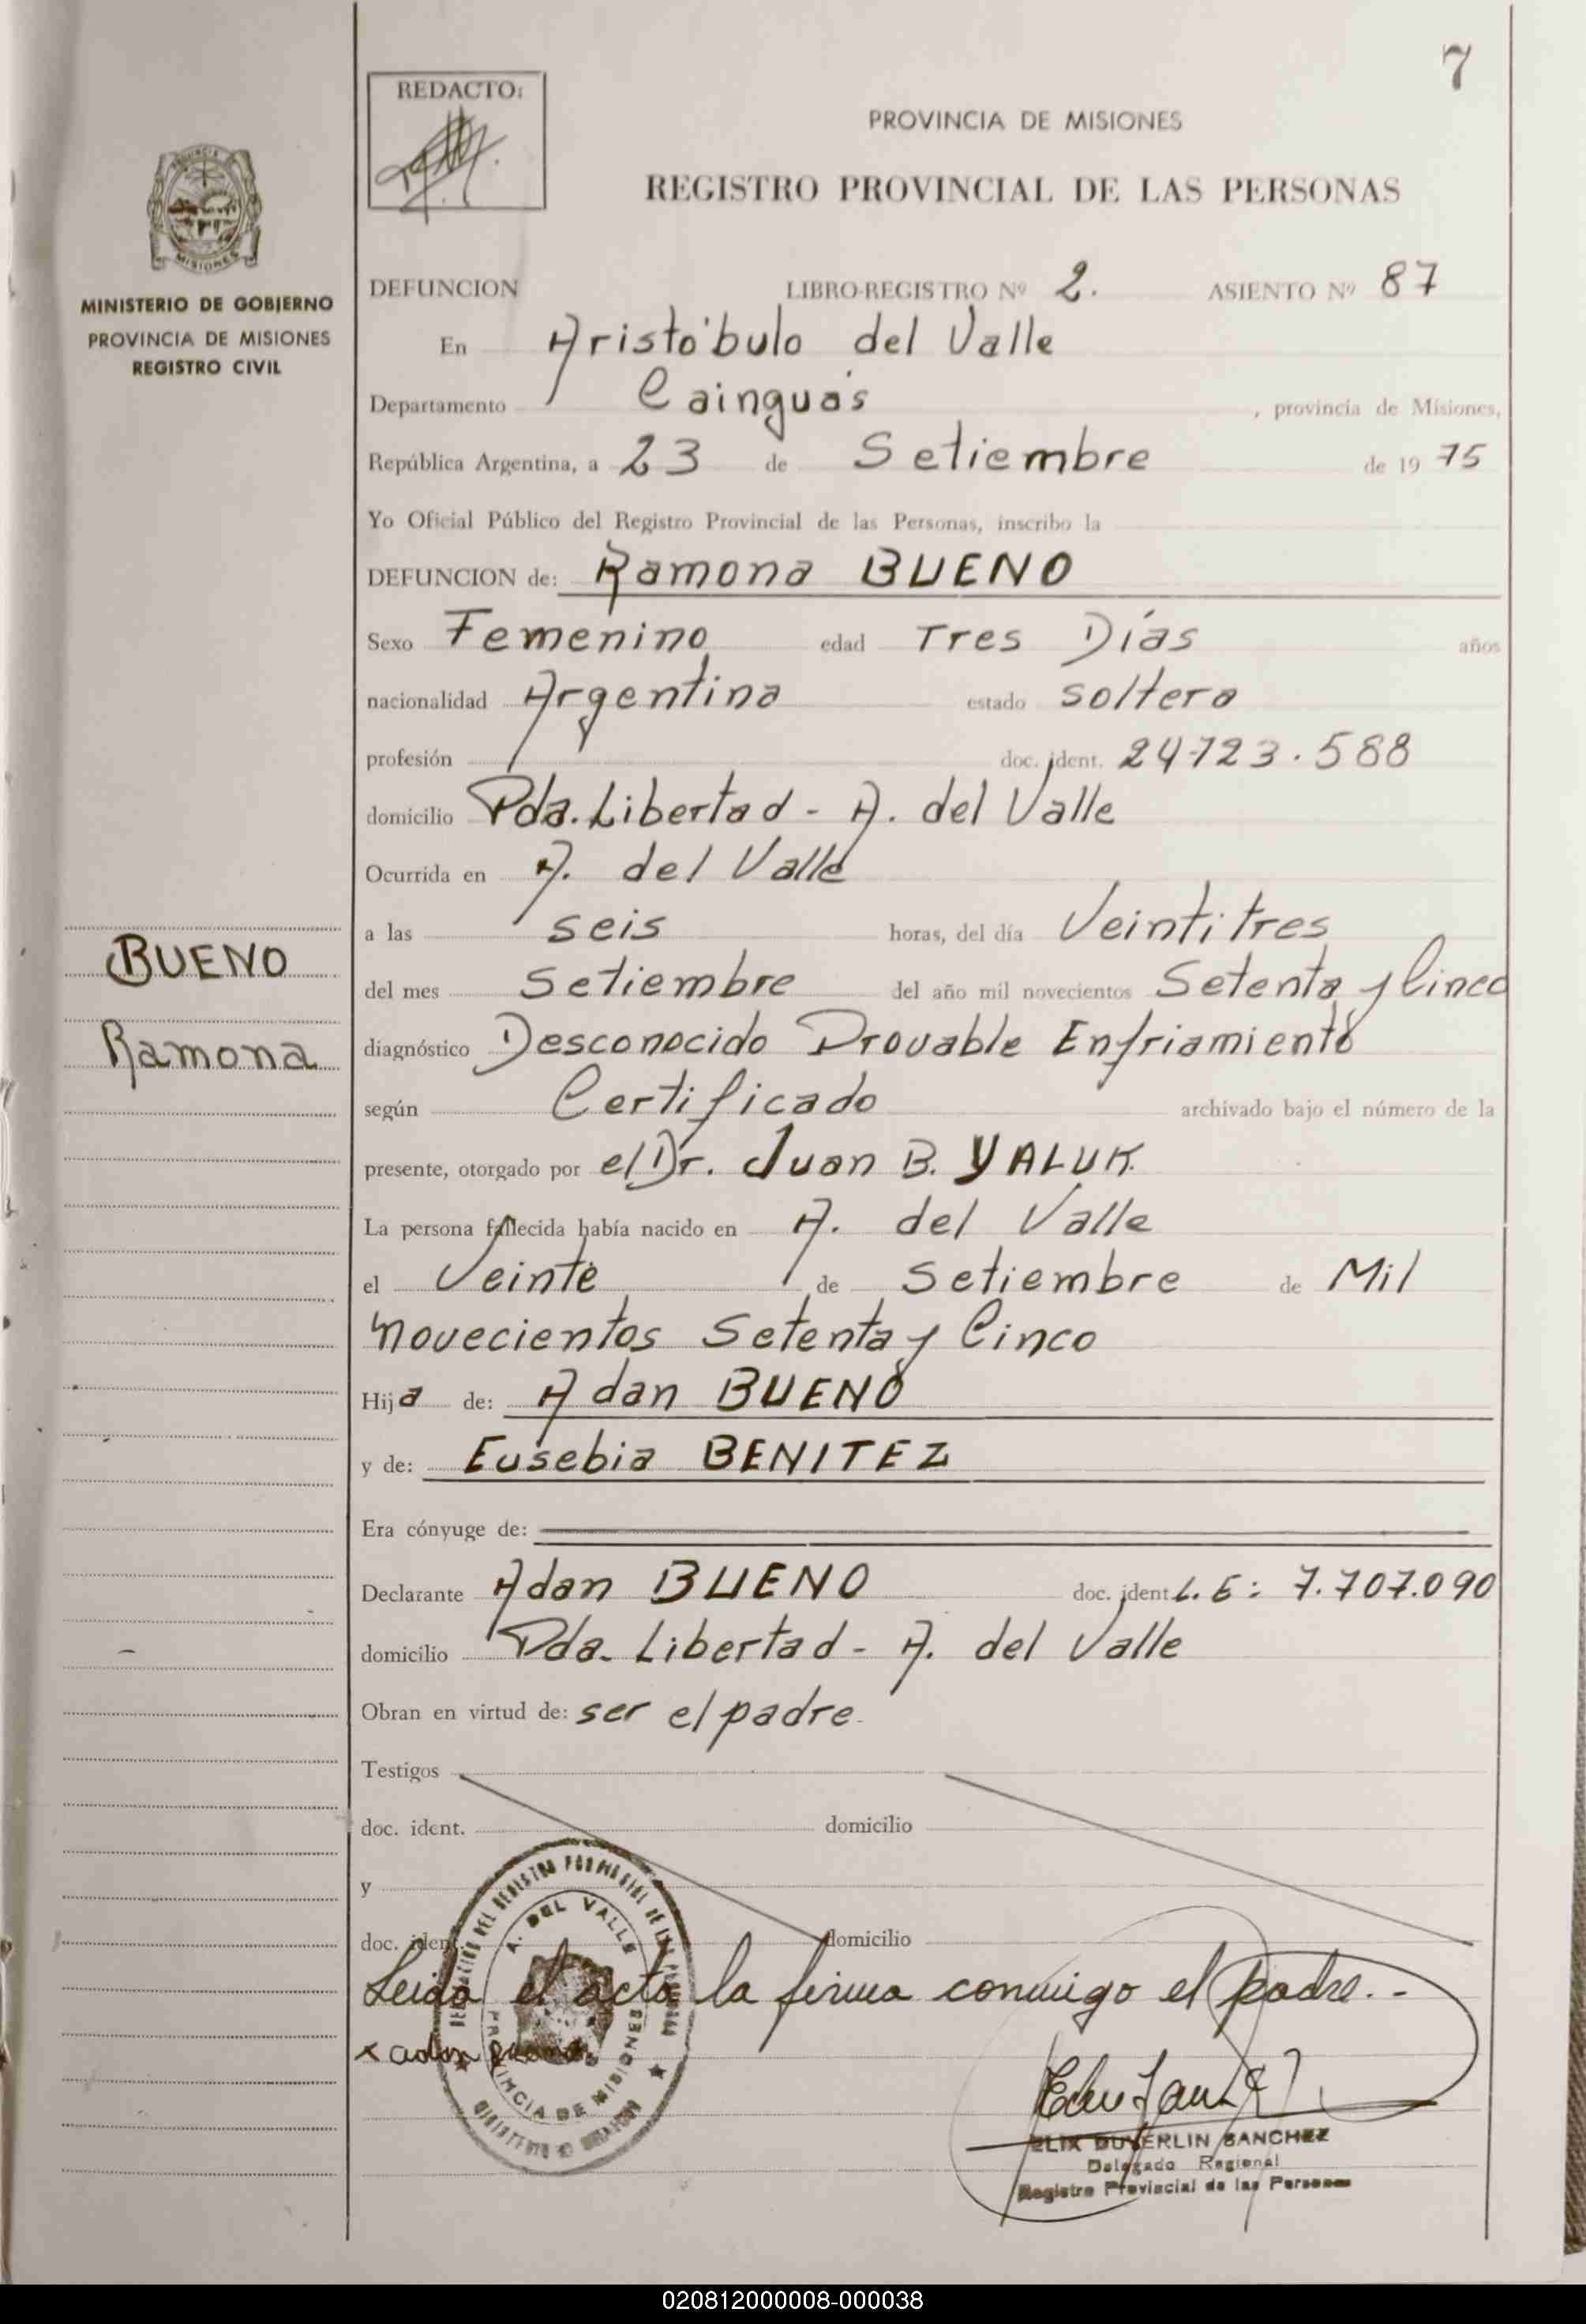 7
REDACTO:
PROVINCIA DE MISIONES
REGISTRO PROVINCIAL DE LAS PERSONAS
MISIONES
MINISTERIO DE GOBIERNO
PROVINCIA DE MISIONES
REGISTRO CIVIL
DEFUNCION LIBRO-REGISTRO Nº 2. ASIENTO Nº 87
En Aristóbulo del Valle
Departamento Cainguás, provincia de Misiones,
República Argentina, a 23 de Setiembre de 1975
Yo Oficial Público del Registro Provincial de las Personas, inscribo la
DEFUNCION de: Ramona BUENO
Sexo Femenino edad Tres Días años
nacionalidad Argentina estado soltera
profesión doc. ident. 24723.588
domicilio Pda. Libertad - A. del Valle
Ocurrida en A. del Valle
a las seis horas, del día Veintitres
del mes Setiembre del año mil novecientos Setenta y Cinco
diagnóstico Desconocido Provable Enfriamiento
según Certificado archivado bajo el número de la
presente, otorgado por el Dr. Juan B. YALUK.
La persona fallecida había nacido en A. del Valle
el Veinte de Setiembre de Mil
novecientos Setenta y Cinco
Hija de: Adan BUENO
y de: Eusebia BENITEZ
Era cónyuge de:
Declarante Adan BUENO doc. ident L.E: 7.707.090
domicilio Pda. Libertad - A. del Valle
Obran en virtud de: ser el padre.
Testigos
doc. ident. domicilio
y
doc. ident. domicilio
Leida el acta la firma conmigo el padre.-
BUENO
Ramona
A. DEL VALLE
PROVINCIA DE MISIONES
x adan bueno
ELIX DUVERLIN SANCHEZ
Delegado Regional
Registro Provincial de las Personas
020812000008-000038